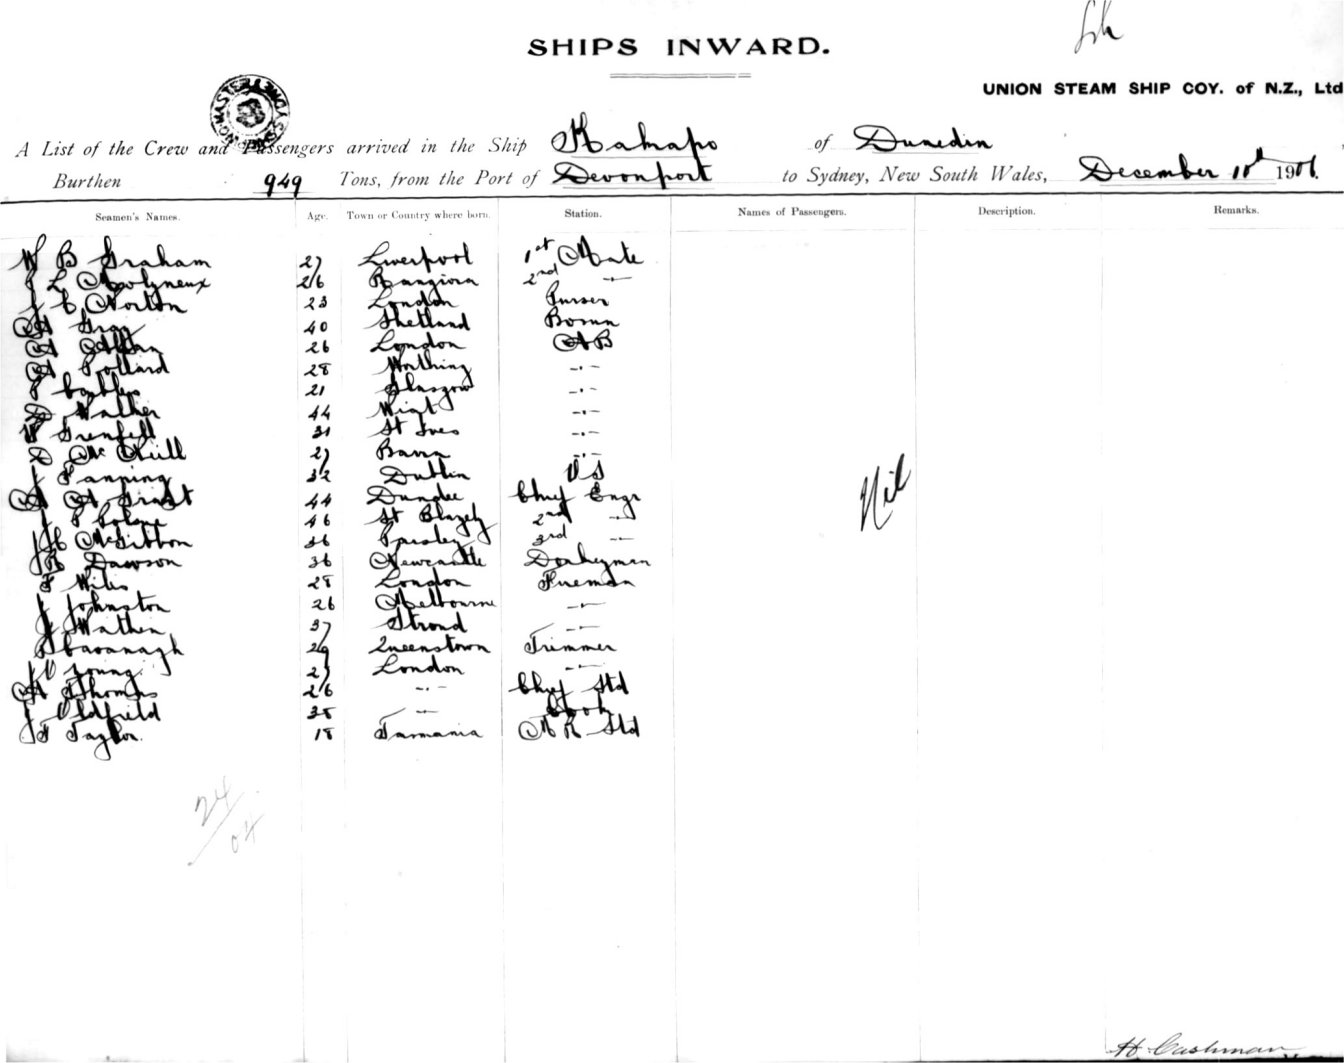 SHIPS INWARD.
UNION STEAM SHIP COY. of N.Z., Ltd
A List of the Crew and Passengers arrived in the Ship Kahapo of Dunedin
Burthen 949 Tons, from the Port of Devonport to Sydney, New South Wales, December 1906.
Seamen's Names. Age. Town or Country where born. Station. Names of Passengers. Description. Remarks.
W B Graham 27 Liverpool 1st Mate
J L Molyneux 26 Rangiora 2nd "
J C Norton 23 London Purser
A Gray 40 Shetland Bosun
A Allan 26 London AB
A Pollard 28 Worthing -"-
21 Glasgow -"-
D Walker 44 -"-
W Grenfell 31 St Ives -"-
D McNeill 27 Barra -"-
J Fanning 32 Dublin OS
A A Grant 44 Dundee Chief Engr
J 46 St Blazey 2nd "
J C McGibbon 36 Paisley 3rd "
J R Dawson 36 Newcastle Donkeyman
F Miles 28 London Fireman
J Johnston 26 Melbourne -"-
J Wathen 37 Stroud -"-
Cavanagh 29 Queenstown Trimmer
Young 27 London -"-
A Thomas 26 -"- Chief Std
J Oldfield 38 -"- Cook
J F Taylor. 18 Tasmania M R Std
Nil
24
04
H Cashman